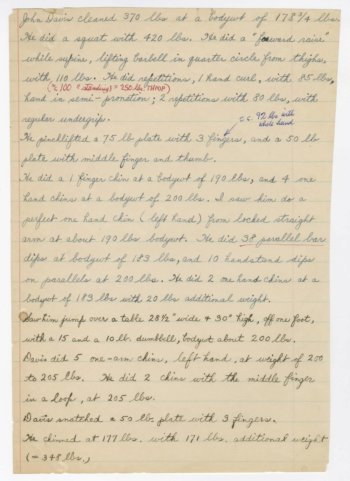 John Davis cleaned 370 lbs at a bodywt of 178 3/4 lbs.
He did a squat with 420 lbs. He did a "forward raise"
while supine, lifting barbell in quarter circle from thighs,
with 110 lbs. He did repetitions, 1 hand curl, with 85 lbs,
(% 100 " standing) = 250 lbs. THMOF
hand in semi-pronation; 2 repetitions with 80 lbs, with
regular undergrip.
c.c. 92 lbs with whole hand
He pinchlifted a 75 lb plate with 3 fingers, and a 50 lb
plate with middle finger and thumb.
He did a 1 finger chin at a bodywt of 190 lbs, and 4 one
hand chins at a bodywt of 200 lbs. I saw him do a
perfect one hand chin (left hand) from locked straight
arm at about 190 lbs bodywt. He did 38 parallel bar
dips at bodywt of 183 lbs, and 10 handstand dips
on parallels at 200 lbs. He did 2 one hand chins at a
bodywt of 183 lbs with 20 lbs additional weight.
Saw him jump over a table 28½" wide & 30" high, off one foot,
with a 15 and a 10 lb. dumbbell, bodywt about 200 lbs.
Davis did 5 one-arm chins, left hand, at weight of 200
to 205 lbs. He did 2 chins with the middle finger
in a loop, at 205 lbs.
Davis snatched a 50 lb. plate with 3 fingers.
He chinned at 177 lbs. with 171 lbs. additional weight
(= 348 lbs.)